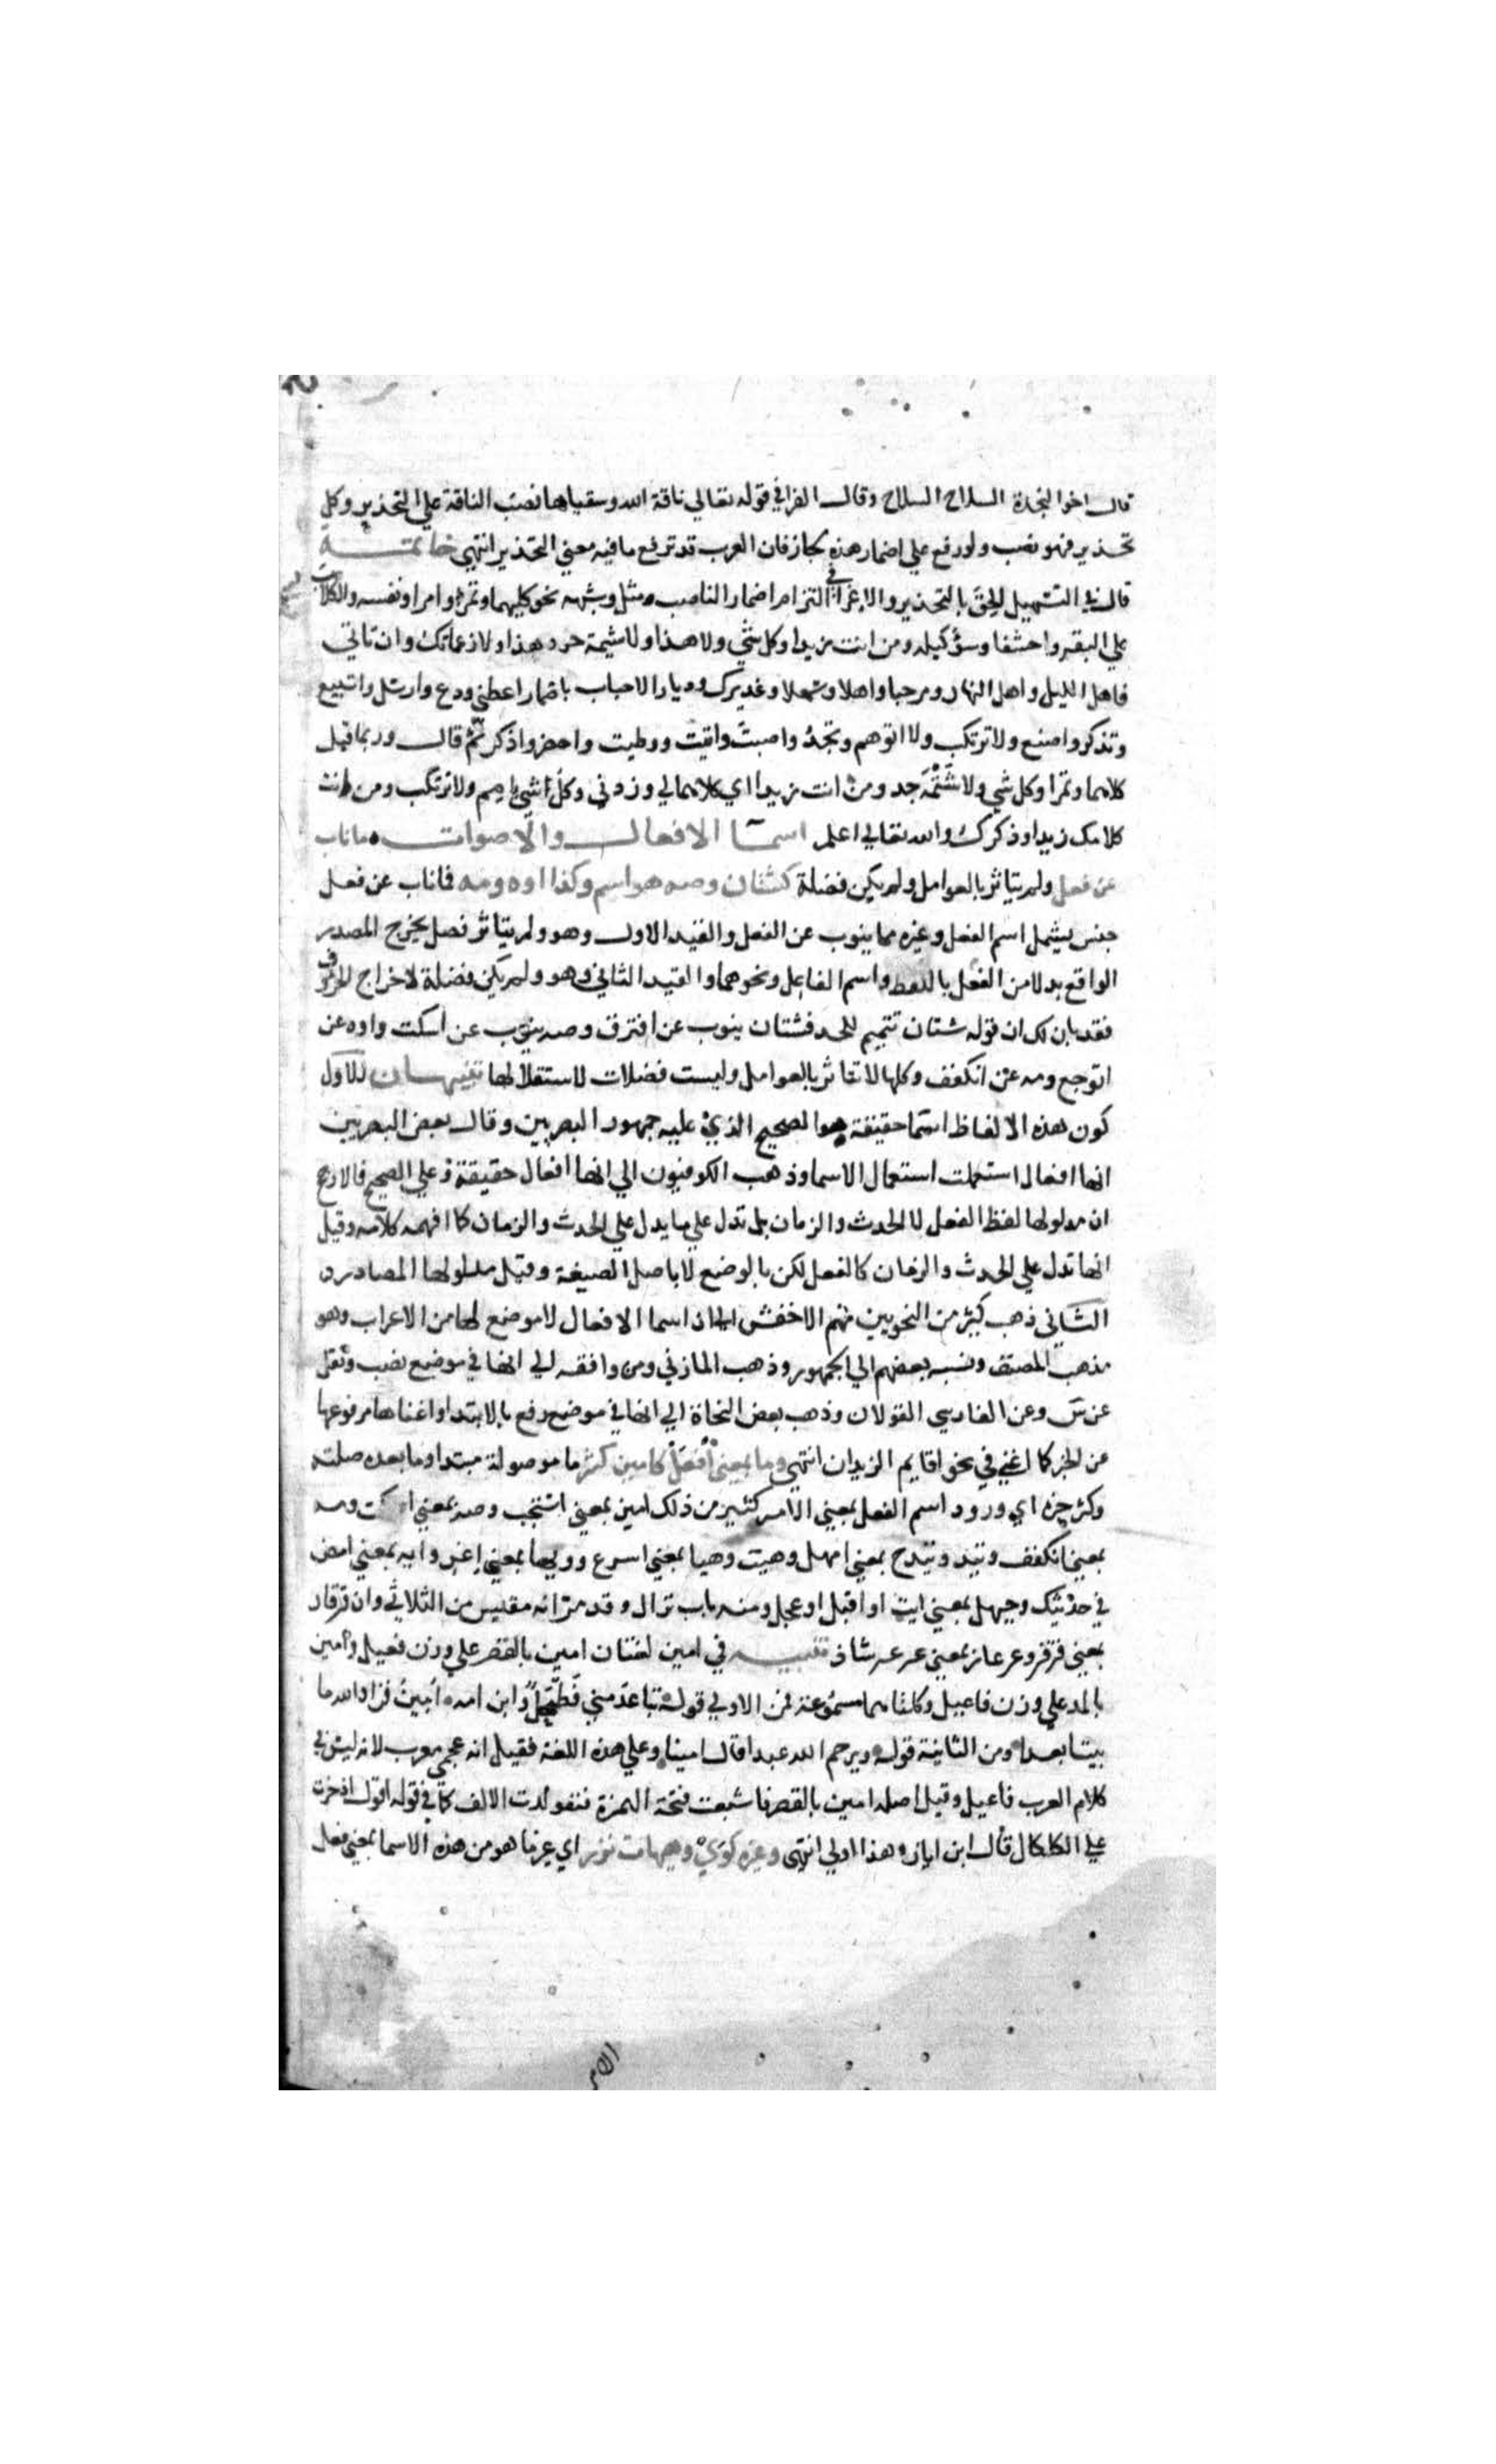 قال اخوا النجدة السلاح السلاح وقال الفرا في قوله تعالي ناقة الله وسقياها نصب الناقة علي التحذير وكل
تحذير فهو نصب ولو رفع علي اضمار هذه لجاز فان العرب قد ترفع ما فيه معني التحذير انتهي خاتمـــة
قال في التسهيل الحق بالتحذير والاغرا في التزام اضمار الناصب مثل وشبهه نحو كليهما وتمرا وامرا ونفسه والكلاب
علي البقر واحشفا وسؤ كيله ومن انت زيدا وكل شي ولا هذا ولا شيمة حر وهذا ولا زعماتك وان تاتي
فاهل الليل واهل النهار ومرحبا واهلا وسهلا وعذيرك وديار الاحباب باضمار اعطني ودع وارسل واتبيع
وتذكر واصنع ولا ترتكب ولا اتوهم وتجد واصبت واتيت ووطيت واحضر واذكر ثم قال وربما قيل
كلاهما وتمرا وكل شي ولا شتمة حد ومن انت زيد اي كلاهما لي وزدني وكل شي امم ولا ترتكب ومن انت
كلامك زيد او ذكرك والله تعالي اعلم اسما الافعال والاصوات ما ناب
عن فعل ولم يتاثر بالعوامل ولم يكن فضلة كشتان وصه هو اسم وكذا اوه ومه فما ناب عن فعل
جنس يشمل اسم الفعل وغيره مما ينوب عن الفعل والقيد الاول وهو ولم يتاثر فصل يخرج المصدر
الواقع بدلا من الفعل باللفظ واسم الفاعل ونحوهما والقيد الثاني وهو ولم يكن فضلة لاخراج الحروف
فقد بان لك ان قوله شتان تتميم للحد فشتان ينوب عن افترق وصه ينوب عن اسكت واوه عن
اتوجع ومه عن انكفف وكلها لا تتاثر بالعوامل وليست فضلات لاستقلالها تنبيهـان الاول
كون هذه الالفاظ اسما حقيقة هو الصحيح الذي عليه جمهور البصريين وقال بعض البصريين
انها افعال استعملت استعمال الاسما وذهب الكوفيون الي انها افعال حقيقة وعلي الصحيح فالارجح
ان مدلولها لفظ الفعل لا الحدث والزمان بل تدل علي ما يدل علي الحدث والزمان كما افهمه كلامه وقيل
انها تدل علي الحدث والزمان كالفعل لكن بالوضع لا باصل الصيغة وقيل مدلولها المصادر
الثاني ذهب كثير من النحويين منهم الاخفش الي ان اسما الافعال لا موضع لها من الاعراب وهو
مذهب المصنف ونسبه بعضهم الي الجمهور وذهب المازني ومن وافقه الي انها في موضع نصب ونقل
عن س وعن الفارسي القولان وذهب بعض النحاة الي انها في موضع رفع بالابتدا واغناها مرفوعها
عن الخبر كما اغني في نحو اقايم الزيدان انتهي وما بمعني افعل كامين كثر ما موصولة مبتدا وما بعده صلته
وكثر خبره اي ورود اسم الفعل بمعني الامر كثير من ذلك امين بمعني استجب وصه بمعني اسكت ومه
بمعني انكفف وتيد وتيدح بمعني امهل وهيت وهيا بمعني اسرع وويها بمعني اغر وايه بمعني امض
في حديثك وحيهل بمعني ايت او اقبل او عجل ومنه باب نزال وقد مر انه مقيس من الثلاثي وان قرقار
بمعني قرقر وعرعار بمعني عرعر شاذ تنبيـه في امين لغتان امين بالقصر علي وزن فعيل وامين
بالمد علي وزن فاعيل وكلتاهما مسموعة فمن الاولي قوله تباعد مني فطحل وابن امه امين فزاد الله ما
بيننا بعدا ومن الثانية قوله ويرحم الله عبدا قال امينا وعلي هذه اللغة فقيل انه عجمي معرب لانه ليس في
كلام العرب فاعيل وقيل اصله امين بالقصر فاشبعت فتحة الهمزة فتولدت الالف كما في قوله اقول اذ خرت
علي الكلكال قال ابن اياز وهذا اولي انتهي وغيره كوي وهيهات نزر اي غير ما هو من هذه الاسما بمعني فعل
الامر